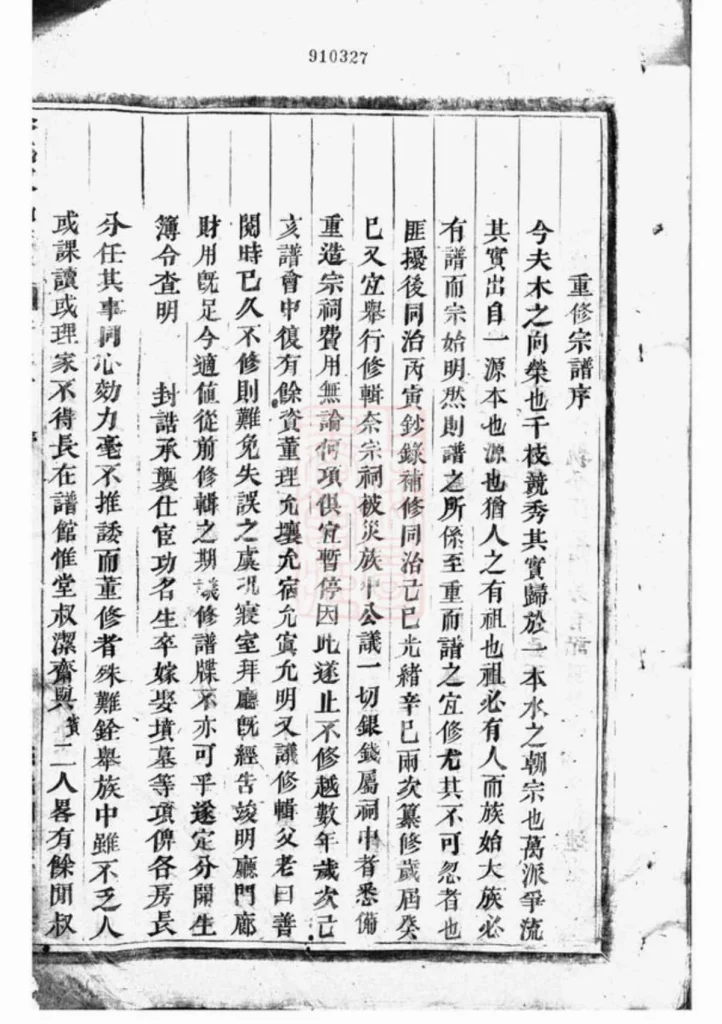 910327
重修宗譜序
今夫木之向榮也千枝競秀其實歸於一本水之朝宗也萬派爭流
其實出自一源本也源也猶人之有祖也祖必有人而族始大族必
有譜而宗始明然則譜之所係至重而譜之宜修尤其不可忽者也
匪擾後同治丙寅鈔錄補修同治己巳光緒辛巳兩次纂修歲屆癸
巳又宜舉行修輯奈宗祠被災族中公議一切銀錢屬祠中者悉備
重造宗祠費用無論何項俱宜暫停因此遂止不修越數年歲次己
亥譜會中復有餘資董理允壤允宿允寅允明又議修輯父老曰善
閱時已久不修則難免失誤之虞況寢室拜廳既經告竣明廳門廊
財用既足今適值從前修輯之期議修譜牒不亦可乎遂定分開生
簿令查明 封誥承襲仕宦功名生卒嫁娶墳墓等項俾各房長
分任其事同心効力毫不推諉而董修者殊難銓舉族中雖不乏人
或課讀或理家不得長在譜館惟堂叔潔齋與 二人畧有餘閒叔